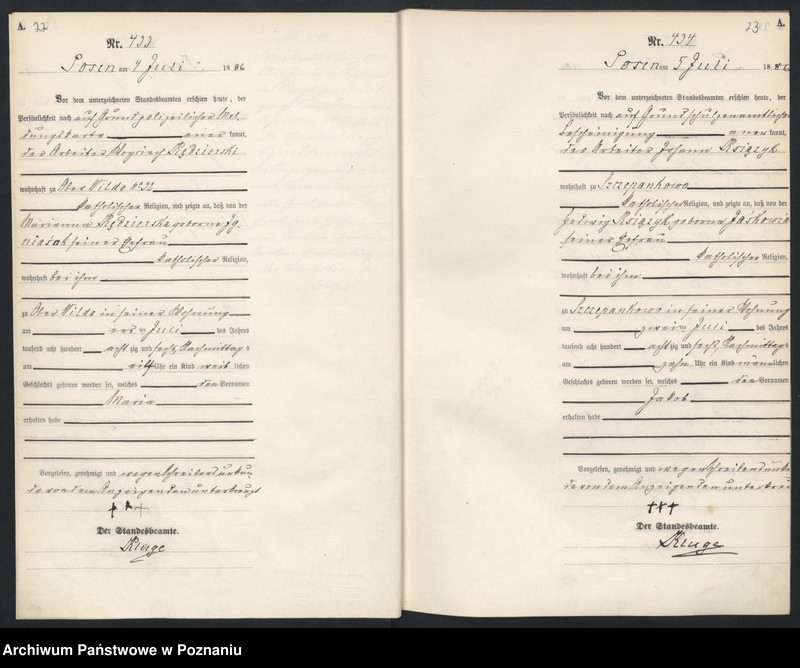 A. 22
Nr. 433
Posen am 4 Juli 1886
Vor dem unterzeichneten Standesbeamten erschien heute, der
Persönlichkeit nach auf Grund polizeilicher Mel
dungskarte anerkannt,
der Arbeiter Woyciech Kędzierski
wohnhaft zu Ober Wilda No 32
katholischer Religion, und zeigte an, daß von der
Marianna Kędzierska geborne
seiner Ehefrau
katholischer Religion,
wohnhaft bei ihm
zu Ober Wilda in seiner Wohnung
am ersten Juli des Jahres
tausend acht hundert achtzig und sechs, Nachmittags
um elf Uhr ein Kind weiblichen
Geschlechts geboren worden sei, welches den Vornamen
Maria
erhalten habe
Vorgelesen, genehmigt und wegen Schreibensunkun
de von dem Anzeigenden unterkreuzt
+ + +
Der Standesbeamte.
Kluge
23 A.
Nr. 434
Posen am 5 Juli 188
Vor dem unterzeichneten Standesbeamten erschien heute, der
Persönlichkeit nach auf Grund schulzenamtlicher
Bescheinigung anerkannt,
der Arbeiter Johann Książyk
wohnhaft zu Szczepankowo
katholischer Religion, und zeigte an, daß von der
Hedwig Książyk geborne Jaskowia
seiner Ehefrau
katholischer Religion,
wohnhaft bei ihm
zu Szczepankowo in seiner Wohnung
am zweiten Juli des Jahres
tausend acht hundert achtzig und sechs, Nachmittags
um zehn Uhr ein Kind männlichen
Geschlechts geboren worden sei, welches den Vornamen
Jakob
erhalten habe
Vorgelesen, genehmigt und wegen Schreibensunkun
de von dem Anzeigenden unterkreu
+++
Der Standesbeamte.
Kluge
Archiwum Państwowe w Poznaniu